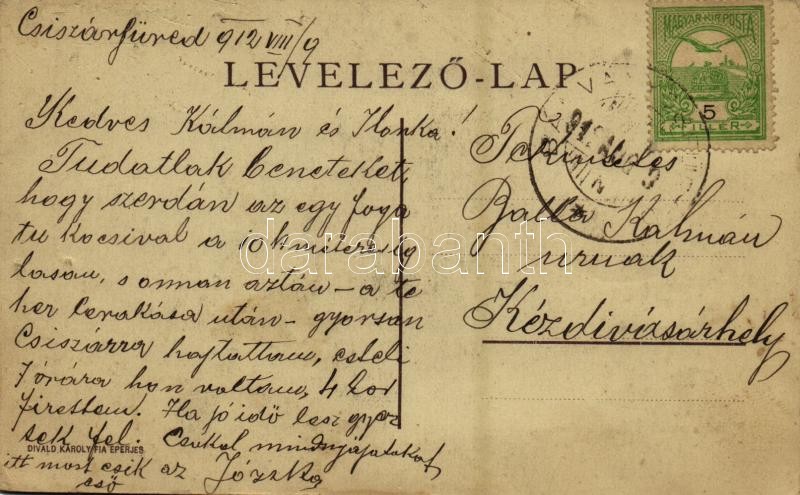 Csiszárfüred 912 VIII/9
LEVELEZŐ-LAP
MAGYAR·KIR·POSTA
5
FILLÉR
Kedves Kálmán és Ilonka!
Tudatlak beneteket,
hogy szerdán az egy foga
tu kocsival a 10 kméterig
lassan, s onnan aztán – a te
her lerakása után – gyorsan
Csiszárra hajtattam, esteli
7 órára hon voltam, 4 kor
fizettem. Ha jó idő lesz gyer
tek fel. Csókol mindnyájatokat
itt most csik az Józska
eső
DIVALD KÁROLY FIA EPERJES
Tekintetes
Balla Kálmán
urnak
Kézdivásárhely
darabanth